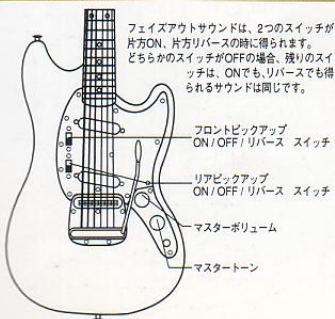 フェイズアウトサウンドは、2つのスイッチが
片方ON、片方リバースの時に得られます。
どちらかのスイッチがOFFの場合、残りのスイ
ッチは、ONでも、リバースでも得
られるサウンドは同じです。
フロントピックアップ
ON / OFF / リバース スイッチ
リアピックアップ
ON / OFF / リバース スイッチ
マスターボリューム
マスタートーン